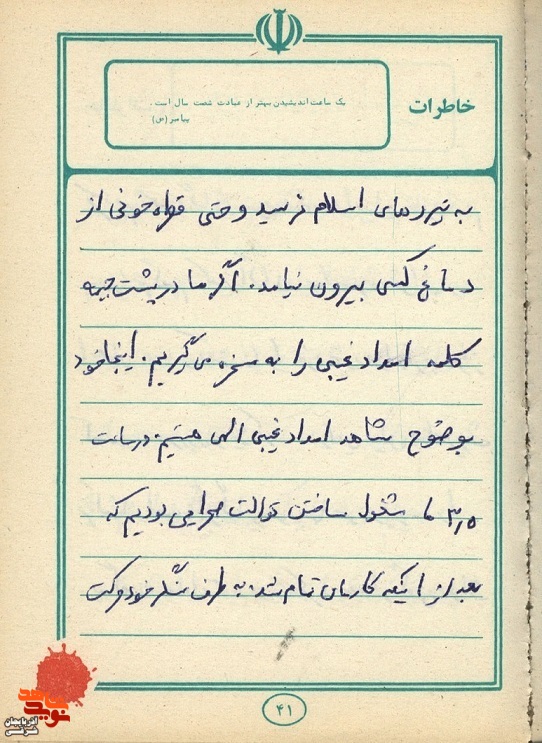 خاطرات
یک ساعت اندیشیدن بهتر از عبادت شصت سال است.
پیامبر (ص)
به نیروهای اسلام نرسید و حتی قطره خونی از
دماغ کسی بیرون نیامد. اگر ما در پشت جبهه
کلمه امداد غیبی را به سخره می‌گیریم. اینجا خود
بوضوح شاهد امداد غیبی الهی هستیم. در ساعت
۳٫۵ ما مشغول ساختن توالت صحرایی بودیم که
بعد از اینکه کارمان تمام شد. به طرف سنگر خود حرکت
۴۱
نوید
آذربایجان